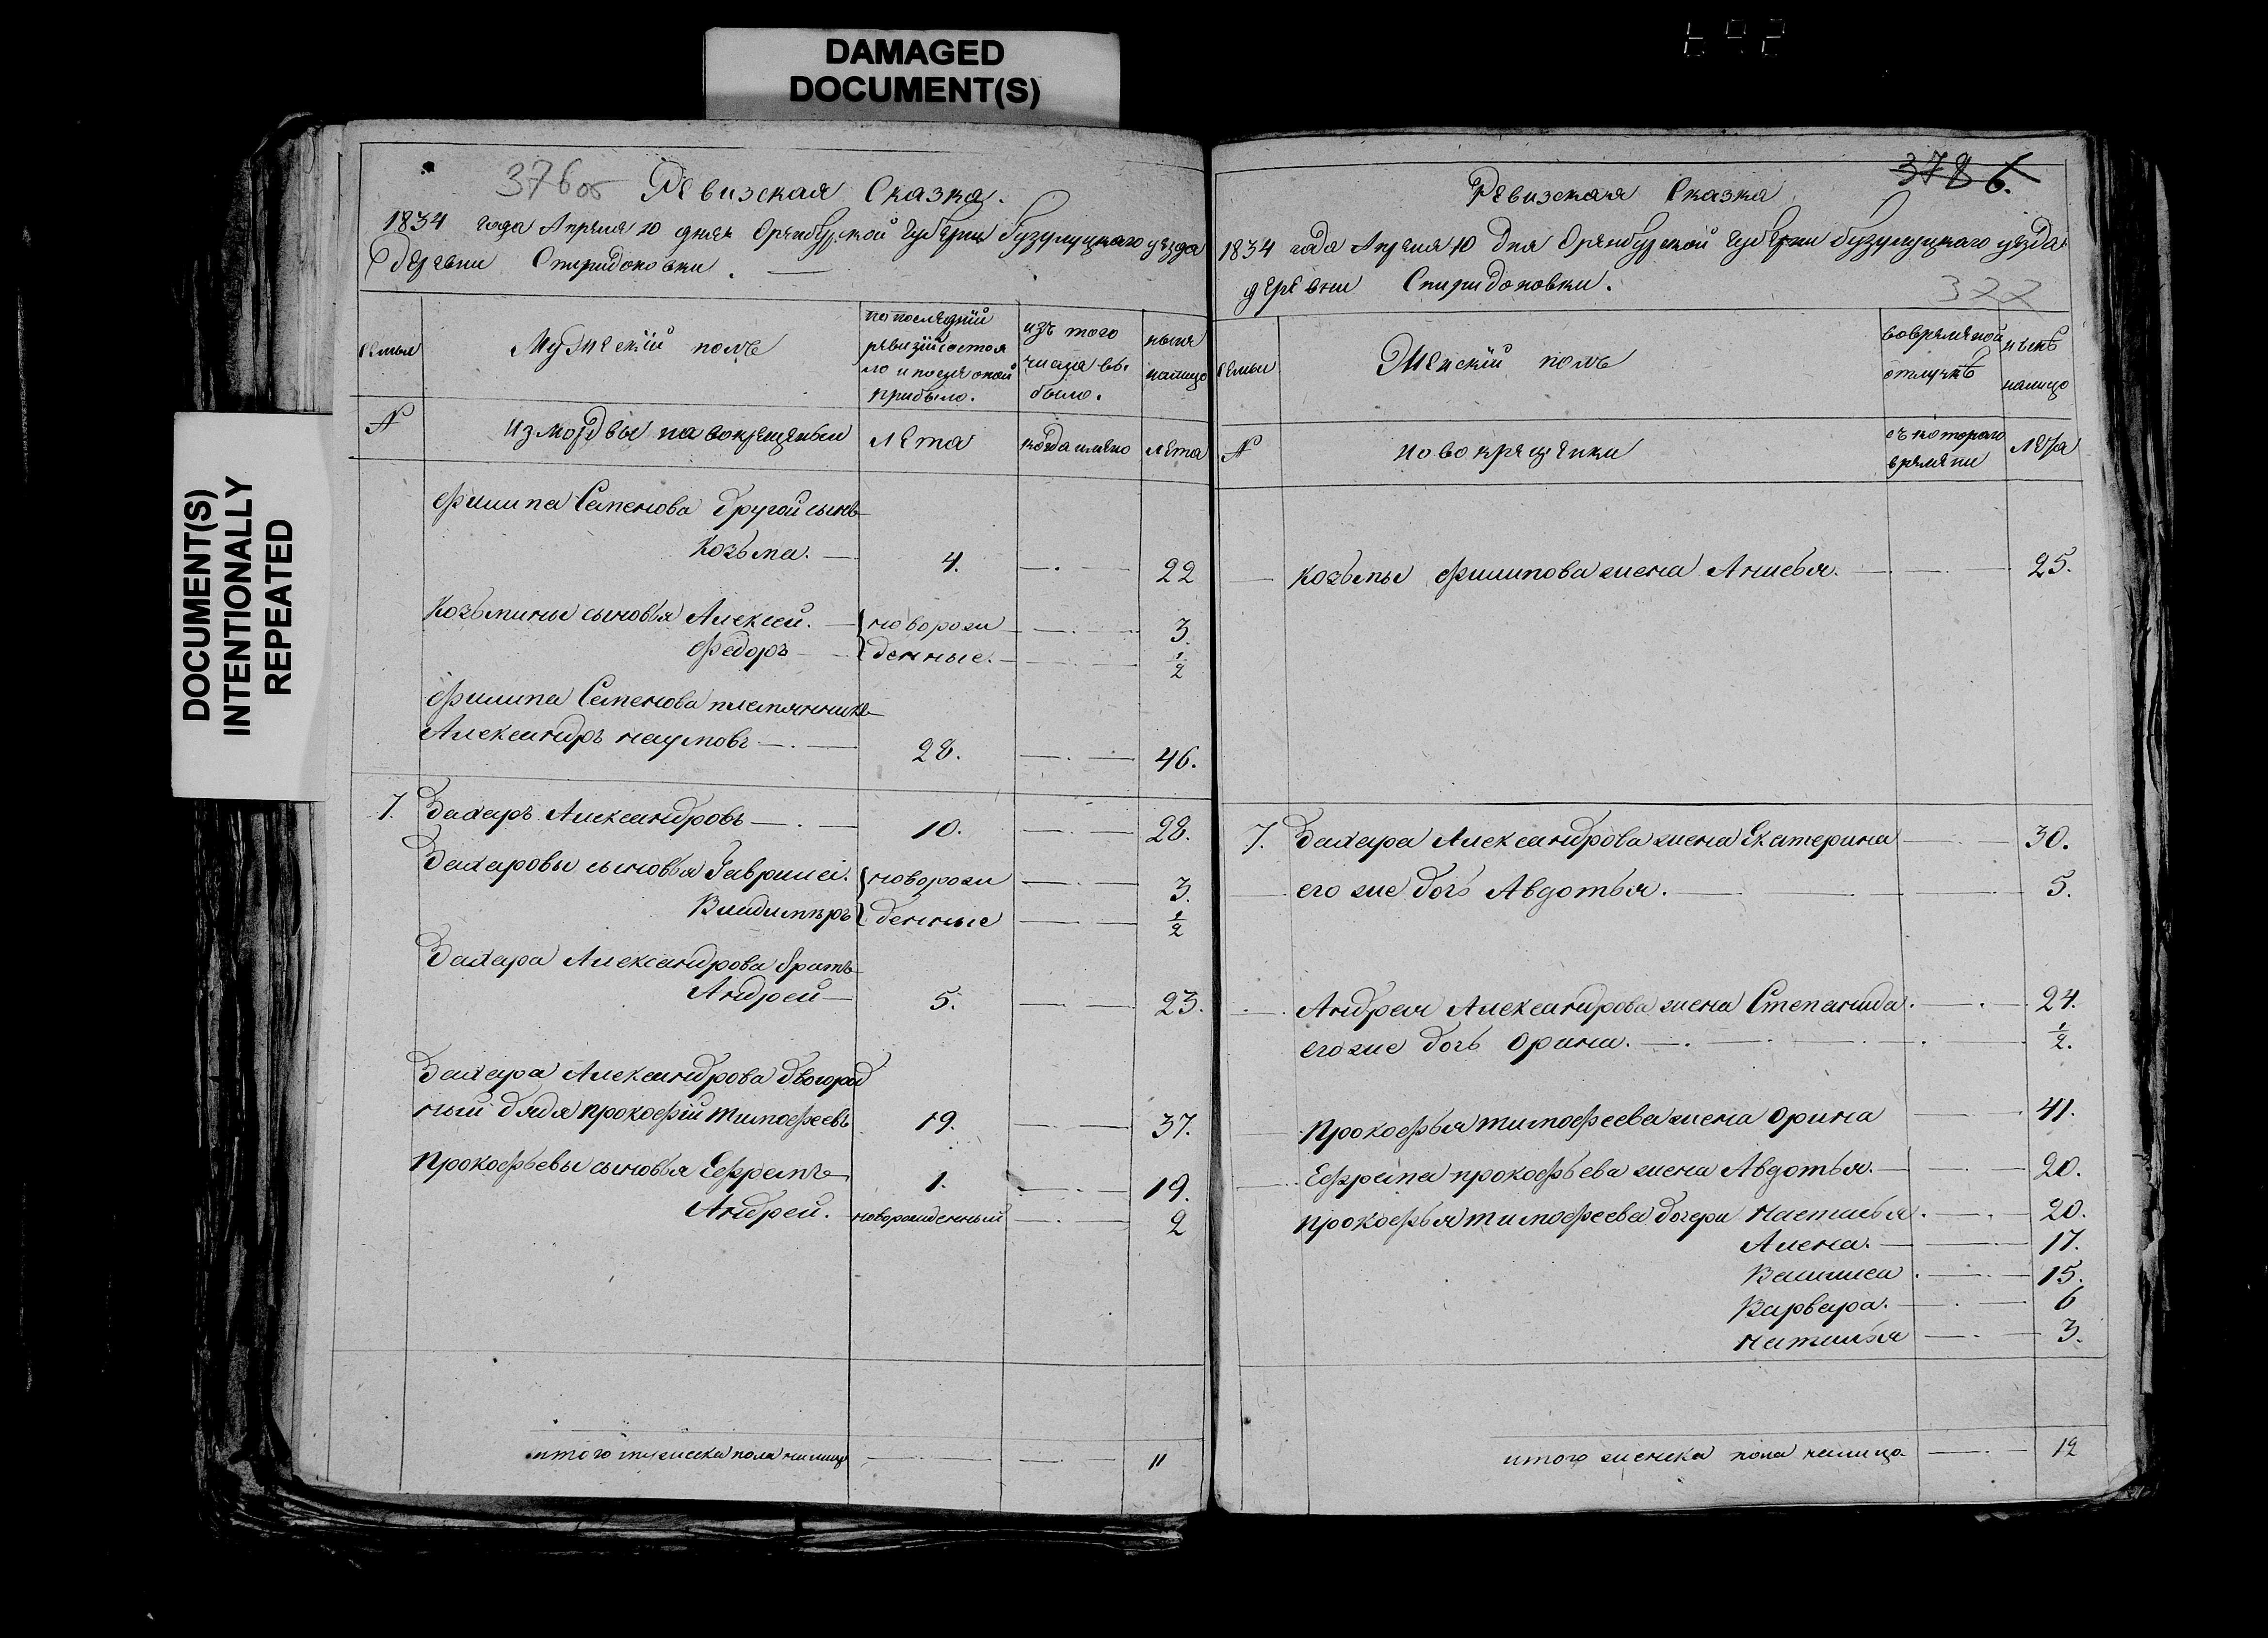 DAMAGED
DOCUMENT(S)
DOCUMENT(S)
INTENTIONALLY
REPEATED
376об
Ревизская Сказка.
1834 года Апреля 10 дня Оренбурской Губерни бузулуцкаго уезда
деревни Спиридоновки.
семьи
Мужескiй полъ
по последнiй
ревизiи состоя
ло и после оной
прибыло.
изъ того
числа вы
было.
ныня
налицо
№
из мордвы новокрещены
лета
когда имяно
лета
Филипа Семенова другой сынъ
Козьма. 4. 22
Козьмины сыновья Алексей. новорож 3.
Федоръ денные. 1/2
Филипа Семенова племянникъ
Александръ наумовъ 28. 46.
7. Захаръ Александровъ 10. 28.
Захаровы сыновья Гаврила. новорож 3.
Владимиръ денные 1/2
Захара Александрова братъ
Андрей 5. 23.
Захара Александрова двоюрод
ный дядя прокофiй тимофеевъ 19. 37.
Прокофьевы сыновья Ефремъ 1. 19.
Андрей. новорожденный 2
итого мужеска пола налицо 11
378 6.
Ревизская Сказка
1834 года Апреля 10 дня Оренбурской губерни бузулуцкаго уезда
деревни Спиридоновки.
377
семьи
Женскiй полъ
во времяной
отлучкѣ
нынѣ
налицо
№
новокрещенки
съ котораго
времяни
лета
Козьмы Филипова жена Анисья. 25.
7. Захара Александрова жена Екатерина 30.
его же дочь Авдотья. 5.
Андрея Александрова жена Степанида. 24.
его же дочь Орина. 1/2.
Прокофья тимофеева жена Орина 41.
Ефрема прокофьева жена Авдотья. 20.
прокофья тимофеева дочери Настасья. 20.
Алена. 17.
Васили­са. 15.
Варвара. 6
Наталья 3.
итого женска пола налицо 12